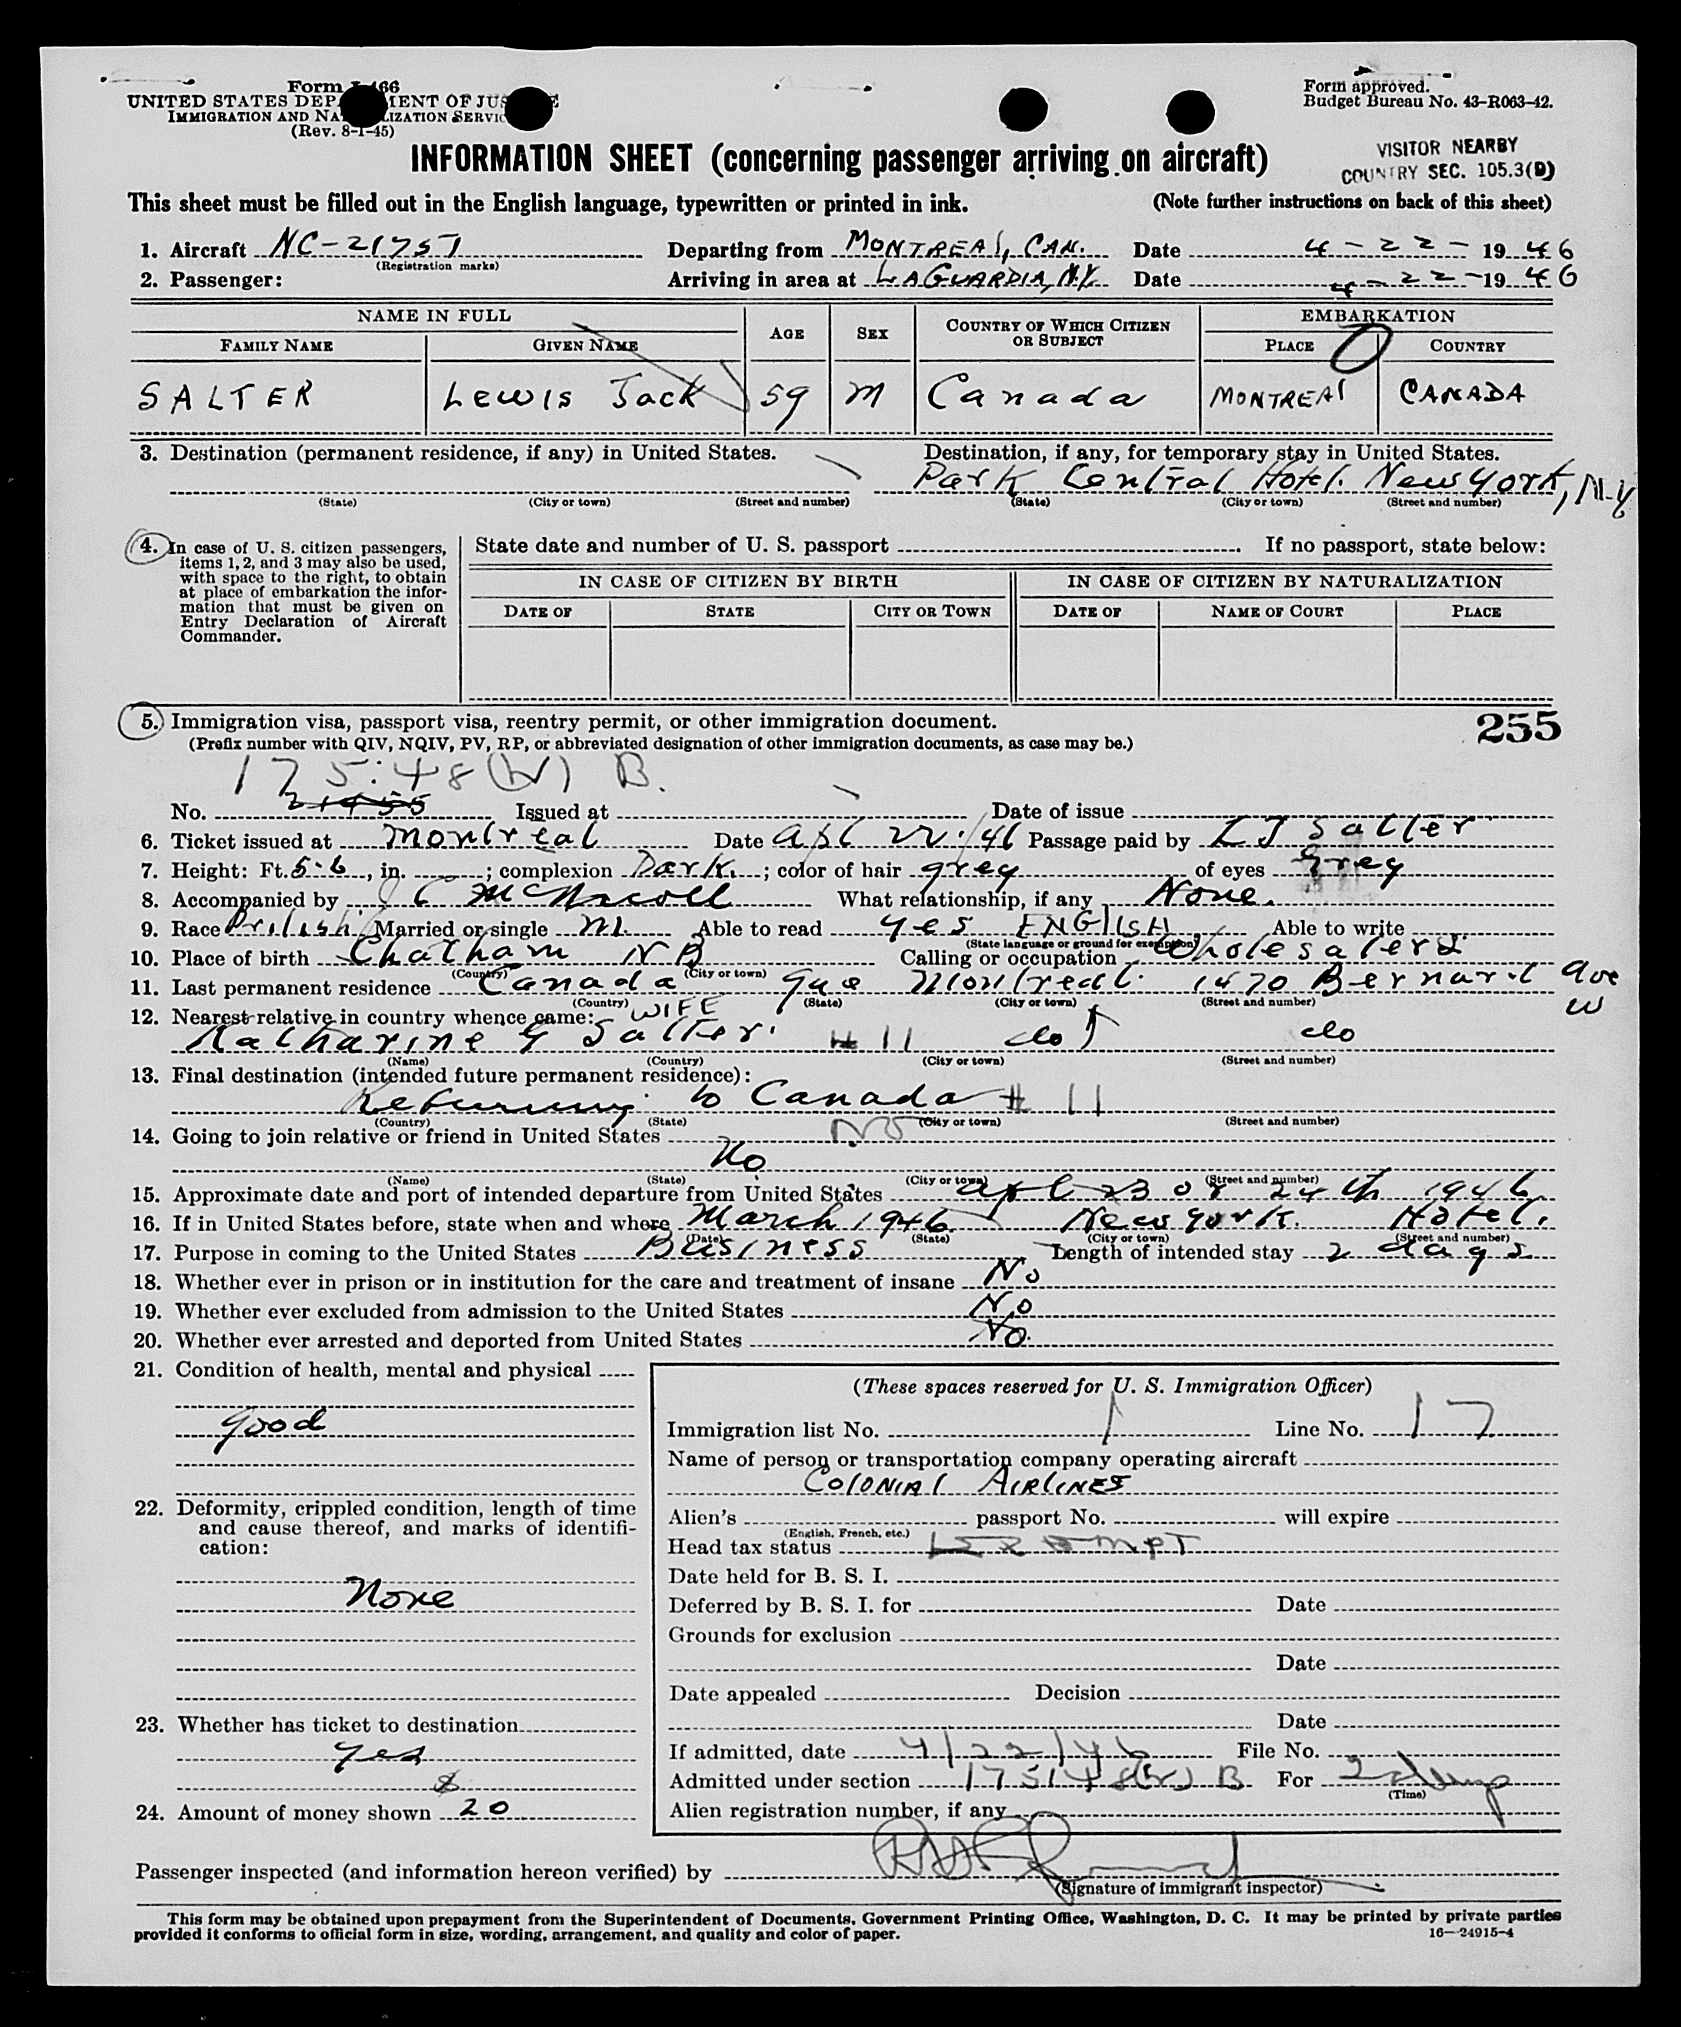 Form I-466
UNITED STATES DEPARTMENT OF JUSTICE
IMMIGRATION AND NATURALIZATION SERVICE
(Rev. 8-1-45)
Form approved.
Budget Bureau No. 43-R063-42.
VISITOR NEARBY
COUNTRY SEC. 105.3(D)
INFORMATION SHEET (concerning passenger arriving on aircraft)
This sheet must be filled out in the English language, typewritten or printed in ink. (Note further instructions on back of this sheet)
1. Aircraft NC-21757 Departing from MONTREAL, CAN. Date 4-22-1946
(Registration marks)
2. Passenger: Arriving in area at LAGUARDIA, N.Y. Date 4-22-1946
NAME IN FULL AGE SEX COUNTRY OF WHICH CITIZEN OR SUBJECT EMBARKATION
FAMILY NAME GIVEN NAME PLACE COUNTRY
SALTER Lewis Jack 59 M Canada MONTREAL CANADA
3. Destination (permanent residence, if any) in United States. Destination, if any, for temporary stay in United States.
Park Central Hotel. New York, N.Y
(State) (City or town) (Street and number) (State) (City or town) (Street and number)
4. In case of U. S. citizen passengers, items 1, 2, and 3 may also be used, with space to the right, to obtain at place of embarkation the information that must be given on Entry Declaration of Aircraft Commander.
State date and number of U. S. passport If no passport, state below:
IN CASE OF CITIZEN BY BIRTH IN CASE OF CITIZEN BY NATURALIZATION
DATE OF STATE CITY OR TOWN DATE OF NAME OF COURT PLACE
5. Immigration visa, passport visa, reentry permit, or other immigration document. 255
(Prefix number with QIV, NQIV, PV, RP, or abbreviated designation of other immigration documents, as case may be.)
175:48(W) B.
No. 21455 Issued at Date of issue
6. Ticket issued at Montreal Date Apl 22.46 Passage paid by LJ Salter
7. Height: Ft. 5-6, in. ; complexion Dark. ; color of hair grey of eyes Grey
8. Accompanied by J C McNicoll What relationship, if any None.
9. Race British Married or single M. Able to read yes ENGLISH Able to write
(State language or ground for exemption)
10. Place of birth Chatham N B Calling or occupation Wholesalers
(Country) (City or town)
11. Last permanent residence Canada Que Montreal. 1470 Bernard Ave W
(Country) (State) (City or town) (Street and number)
12. Nearest relative in country whence came: WIFE
Katharine G Salter. #11 do do
(Name) (Country) (City or town) (Street and number)
13. Final destination (intended future permanent residence):
Returning to Canada #11
(Country) (State) (City or town) (Street and number)
14. Going to join relative or friend in United States
No
(Name) (State) (City or town) (Street and number)
15. Approximate date and port of intended departure from United States Apl 23 or 24th 1946
16. If in United States before, state when and where March 1946 New York. Hotel.
(Date) (State) (City or town) (Street and number)
17. Purpose in coming to the United States Business Length of intended stay 2 days
18. Whether ever in prison or in institution for the care and treatment of insane No
19. Whether ever excluded from admission to the United States No
20. Whether ever arrested and deported from United States No.
21. Condition of health, mental and physical
good
22. Deformity, crippled condition, length of time and cause thereof, and marks of identification:
None
23. Whether has ticket to destination
Yes
$
24. Amount of money shown 20
(These spaces reserved for U. S. Immigration Officer)
Immigration list No. 1 Line No. 17
Name of person or transportation company operating aircraft
COLONIAL AIRLINES
Alien's passport No. will expire
(English, French, etc.)
Head tax status Exempt
Date held for B. S. I.
Deferred by B. S. I. for Date
Grounds for exclusion
Date
Date appealed Decision
Date
If admitted, date 4/22/46 File No.
Admitted under section 175148(W) B For
(Time)
Alien registration number, if any
Passenger inspected (and information hereon verified) by
(Signature of immigrant inspector)
This form may be obtained upon prepayment from the Superintendent of Documents, Government Printing Office, Washington, D. C. It may be printed by private parties
provided it conforms to official form in size, wording, arrangement, and quality and color of paper. 16—24915-4